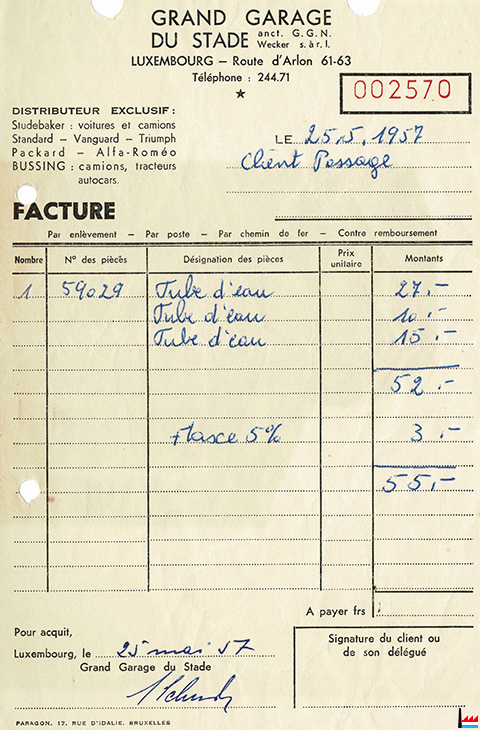 GRAND GARAGE
DU STADE anct. G.G.N. Wecker s. à r. l.
LUXEMBOURG – Route d'Arlon 61-63
Téléphone : 244.71
★
002570
DISTRIBUTEUR EXCLUSIF :
Studebaker : voitures et camions
Standard – Vanguard – Triumph
Packard – Alfa-Roméo
BUSSING : camions, tracteurs
autocars.
LE 25.5.1957
Client Passage
FACTURE
Par enlèvement – Par poste – Par chemin de fer – Contre remboursement
Nombre N° des pièces Désignation des pièces Prix unitaire Montants
1 59029 Tube d'eau 27.-
Tube d'eau 10.-
Tube d'eau 15.-
52.-
+ tasce 5% 3.-
55.-
A payer frs
Pour acquit,
Luxembourg, le 25 mai 57
Grand Garage du Stade
Signature du client ou
de son délégué
PARAGON, 17, RUE D'IDALIE, BRUXELLES